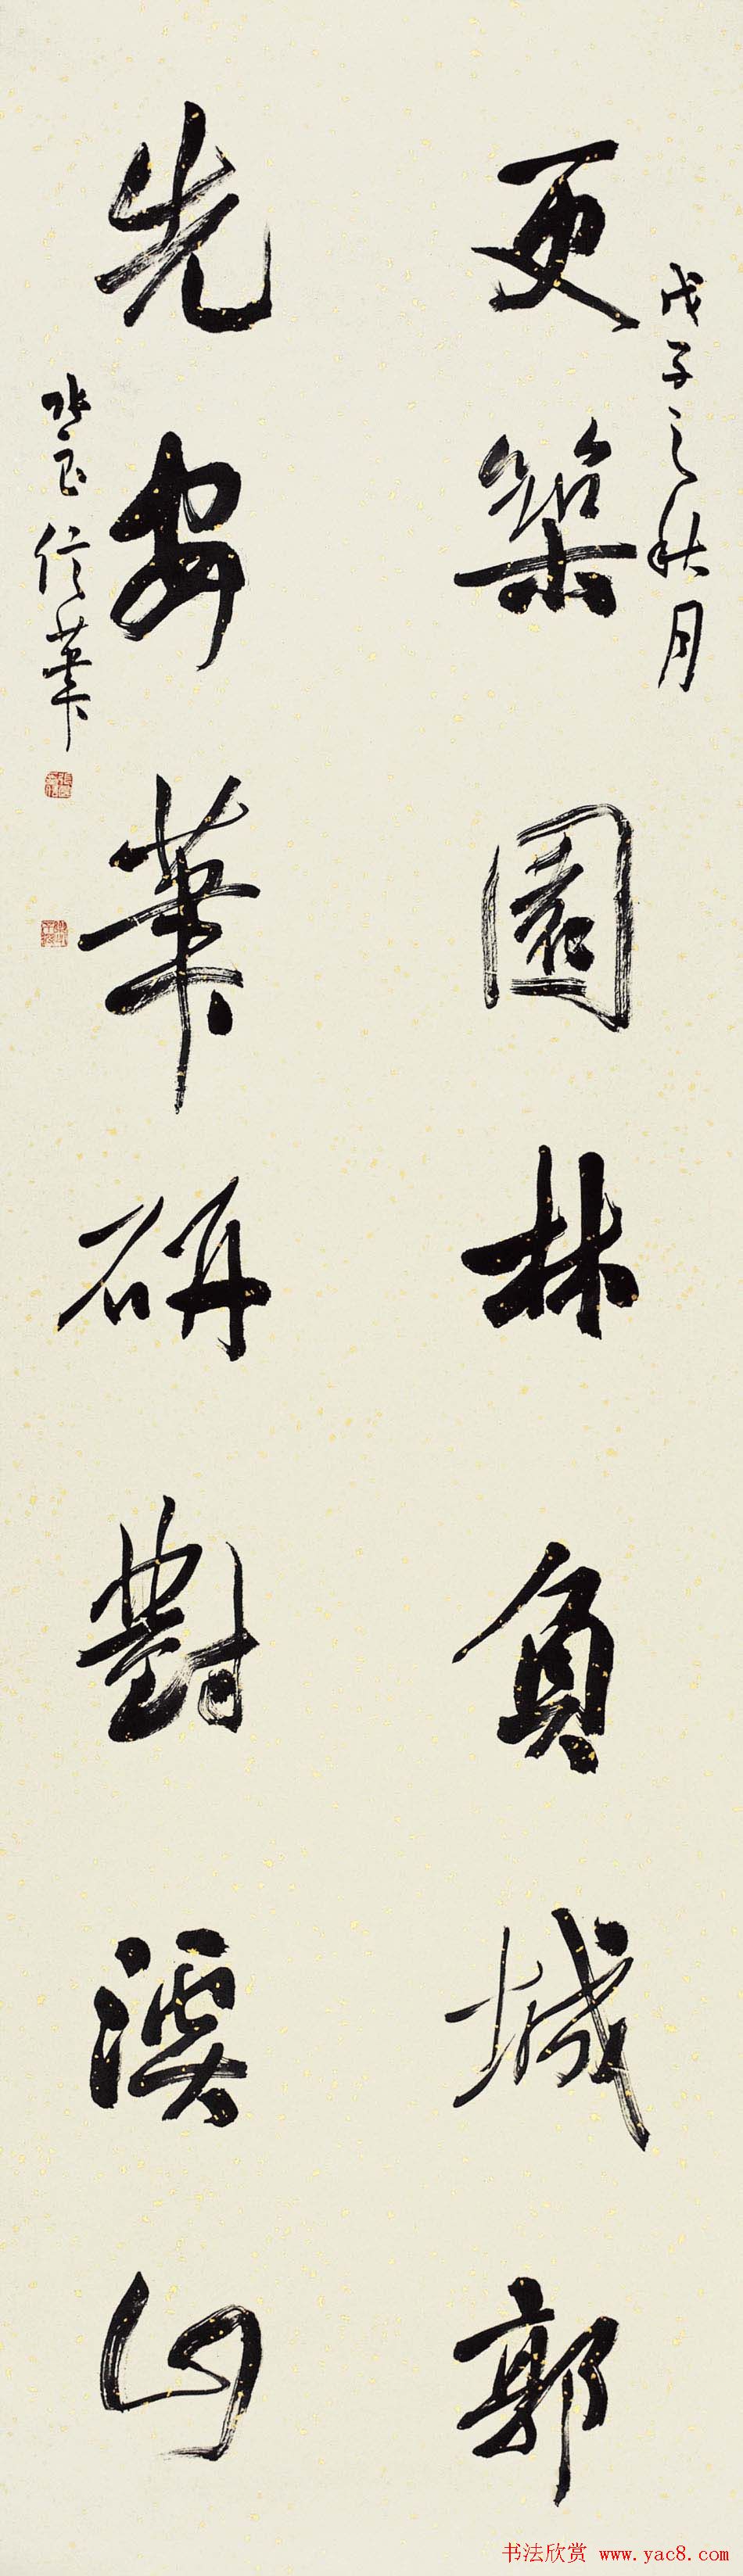 戊子之秋月
更築園林負城郭
先安筆研對溪山
信筆
书法欣赏 www.yac8.com